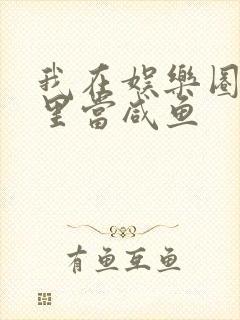 我在娱樂圈
里當咸鱼
有鱼互鱼